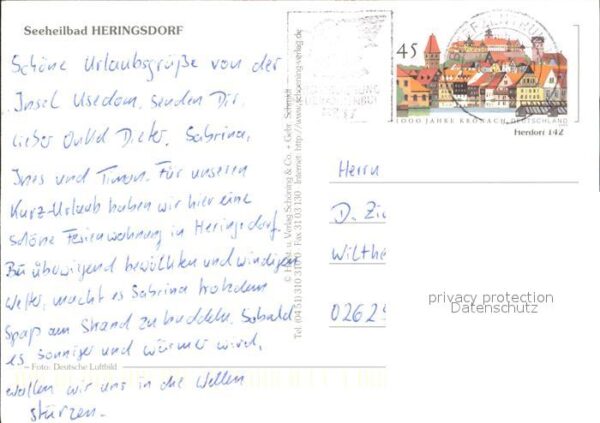 Seeheilbad HERINGSDORF
Schöne Urlaubsgrüße von der
Insel Usedom, senden Dir,
lieber Onkel Dieter, Sabrina,
Ines und Timon. Für unseren
Kurz-Urlaub haben wir hier eine
schöne Ferienwohnung in Heringsdorf.
Bei überwiegend bewölkten und windigen
Wetter, macht es Sabrina trotzdem
Spaß am Strand zu buddeln. Sobald
es sonniger und wärmer wird,
wollen wir uns in die Wellen
stürzen.
– Foto: Deutsche Luftbild
Verlag Schöning & Co. + Gebr. Schmidt
Internet: http://www.schoening-verlag.de
45
1000 JAHRE KRONACH DEUTSCHLAND
Herdorf 142
Herrn
D. Zi
Wilthe
0262
privacy protection
Datenschutz